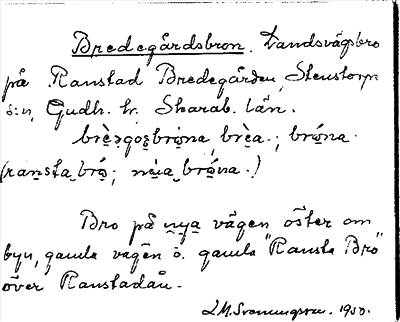 Bredegårdsbron. Landsvägsbro
på Ranstad Bredegården, Stenstorps
s:n, Gudh. hr. Skarab. län.
brè̱ǝgo̱s̱brò̱na, brè̱a.; bró̱na.
(ransta̱ bró̱; nẏa̱ bró̱na.)
Bro på nya vägen öster om
byn, gamla vägen ö. gamla "Ransta Bro"
över Ranstadån.
L.M. Svenungsson. 1930.